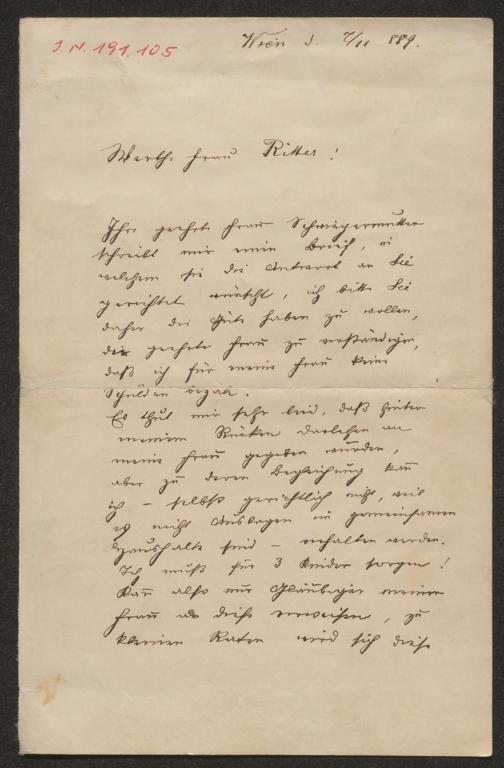 J.N. 191.105
Wien d. 7/11 889.
Werthe Frau Ritter!
Ihre geehrte Frau Schwiegermutter
schreibt mir einen Brief, in
welchem sie die Antwort an Sie
gerichtet wünscht, ich bitte Sie
daher die Güte haben zu wollen,
der geehrte Frau zu verständigen,
daß ich für meine Frau keine
Schulden bezale.
Es thut mir sehr leid, daß hinter
meinem Rücken Darlehen an
meine Frau gegeben wurden,
aber zu deren Begleichung kann
ich – selbst gerichtlich nicht, weil
es nicht Auslagen im gemeinsamen
Haushalte sind – verhalten werden.
Ich muß für 3 Kinder sorgen!
Kann also nur Gläubiger meiner
Frau an diese verweisen, zu
kleinen Raten wird sich diese